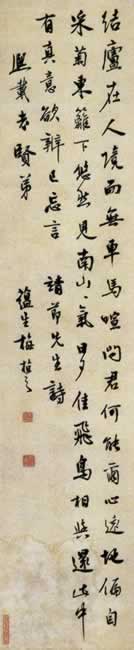 結廬在人境而無車馬喧問君何能爾心遠地偏自
采菊東籬下悠然見南山〻氣日夕佳飛鳥相與還此中
有真意欲辨已忘言 靖節先生詩
熙載老賢弟 蘊生梅植之